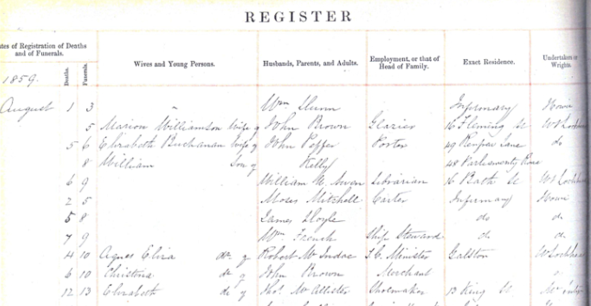 REGISTER
Dates of Registration of Deaths and of Funerals.
Deaths. Funerals. Wives and Young Persons. Husbands, Parents, and Adults. Employment, or that of Head of Family. Exact Residence. Undertakers or Wrights.
1859.
August 1 3 " Wm Infirmary Town
5 Marion Williamson Wife of John Brown Glazier 16 Fleming St
5 6 Elizabeth Buchanan Wife of John Pepper Porter 49 Renfrew Lane do
8 William Son of Kelly 48 Parliamentary Road
6 9 William Librarian 16 Bath St
2 5 Moses Mitchell Carter Infirmary Town
5 8 James Doyle do do
7 9 Wm French Ship Steward do do
4 10 Agnes Eliza dr of Robert Minister Galston
6 10 Christina dr of John Brown Merchant
12 13 Elizabeth dr of Thos Shoemaker 13 King St